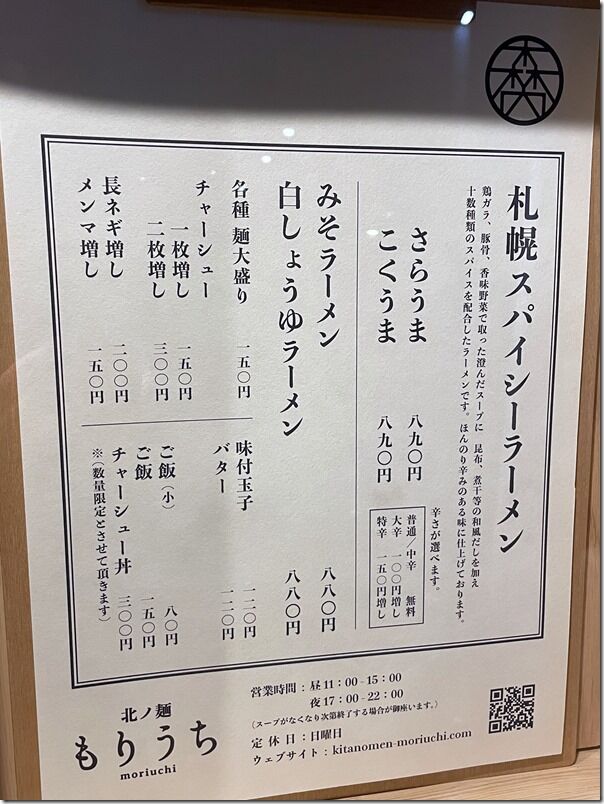 札幌スパイシーラーメン
鶏ガラ、豚骨、香味野菜で取った澄んだスープに 昆布、煮干等の和風だしを加え
十数種類のスパイスを配合したラーメンです。ほんのり辛みのある味に仕上げております。
さらうま 八九〇円
こくうま 八九〇円
辛さが選べます。
普通/中辛 無料
大辛 一〇〇円増し
特辛 一五〇円増し
みそラーメン 八八〇円
白しょうゆラーメン 八八〇円
各種 麺大盛り 一五〇円
チャーシュー
一枚増し 一五〇円
二枚増し 三〇〇円
長ネギ増し 二〇〇円
メンマ増し 一五〇円
味付玉子 一二〇円
バター 一二〇円
ご飯(小) 八〇円
ご飯 一五〇円
チャーシュー丼 三〇〇円
※(数量限定とさせて頂きます)
営業時間:昼11:00-15:00
夜17:00-22:00
(スープがなくなり次第終了する場合が御座います。)
定休日:日曜日
ウェブサイト:kitanomen-moriuchi.com
北ノ麺
もりうち
moriuchi